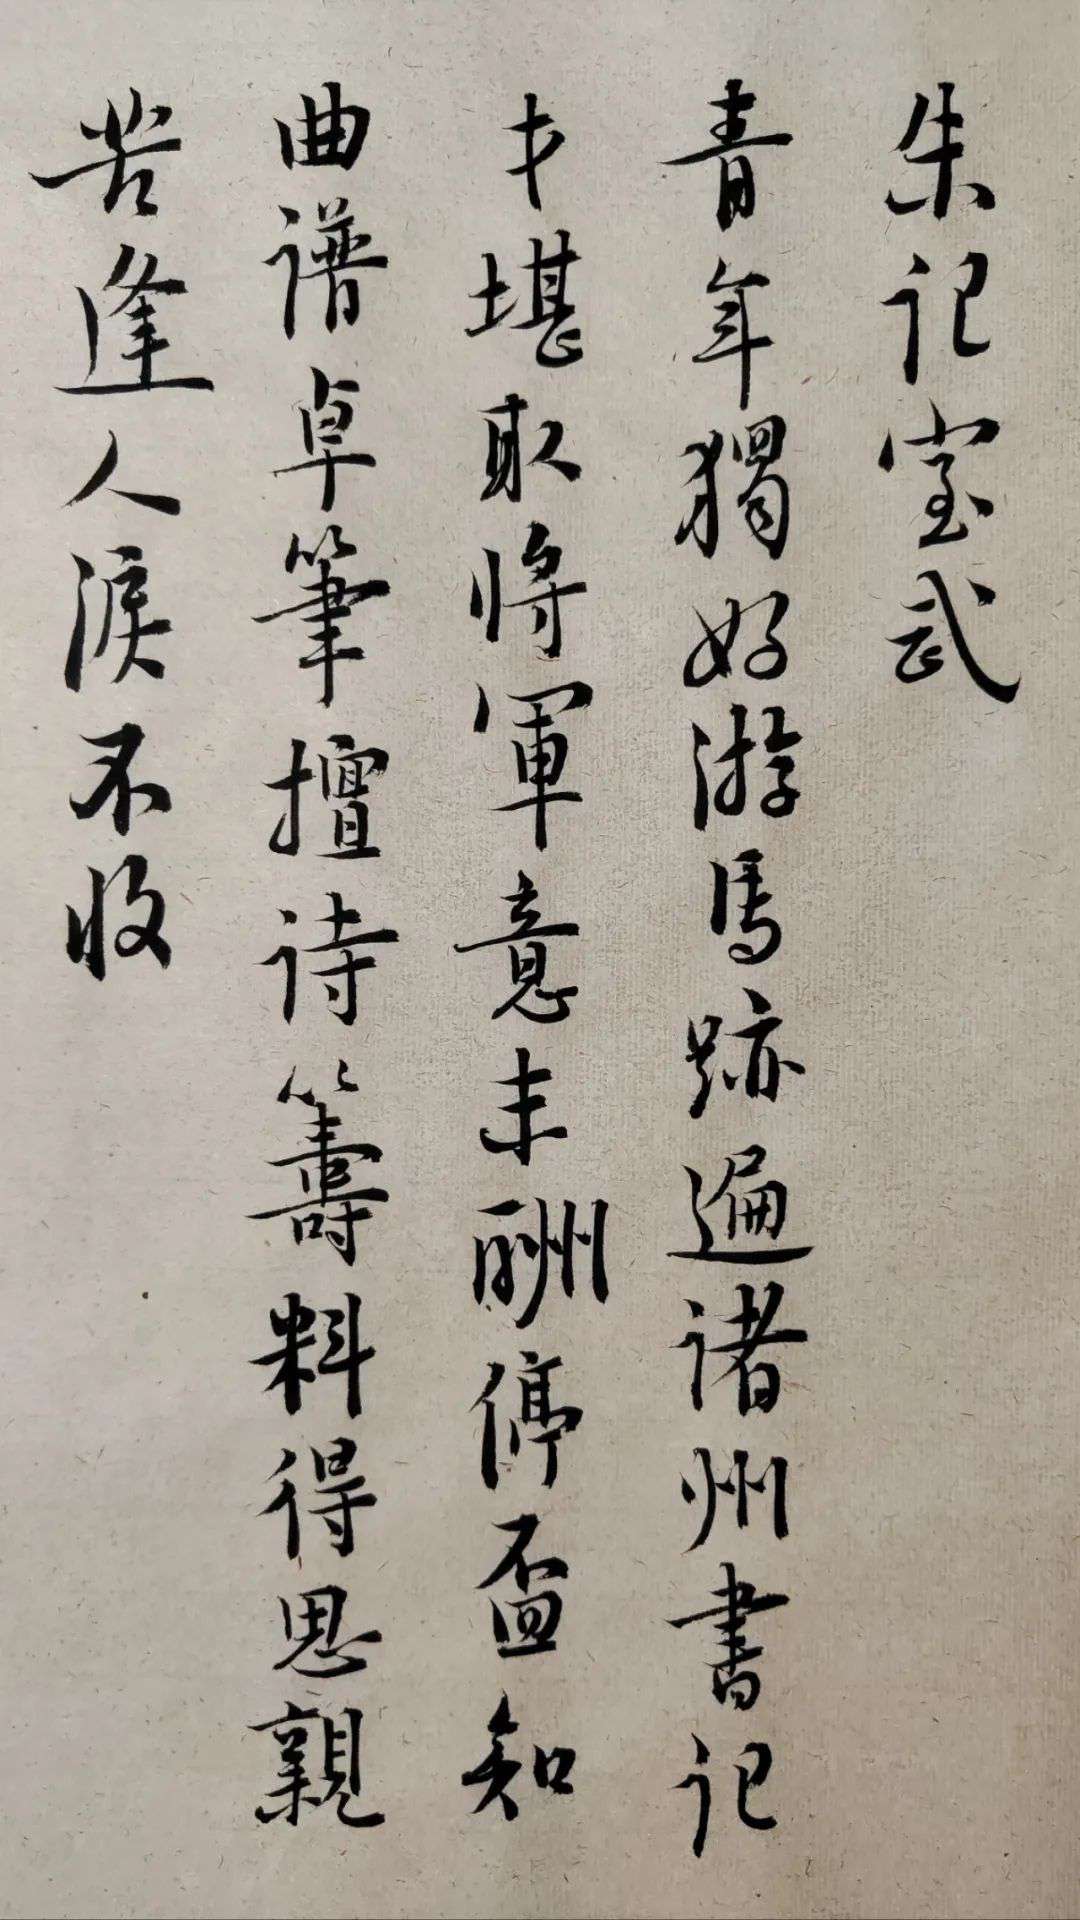 朱记室武
青年獨好游馬跡遍诸州書记
才堪取將軍意未酬停盃知
曲谱卓筆擅诗籌料得思親
苦逢人淚不收